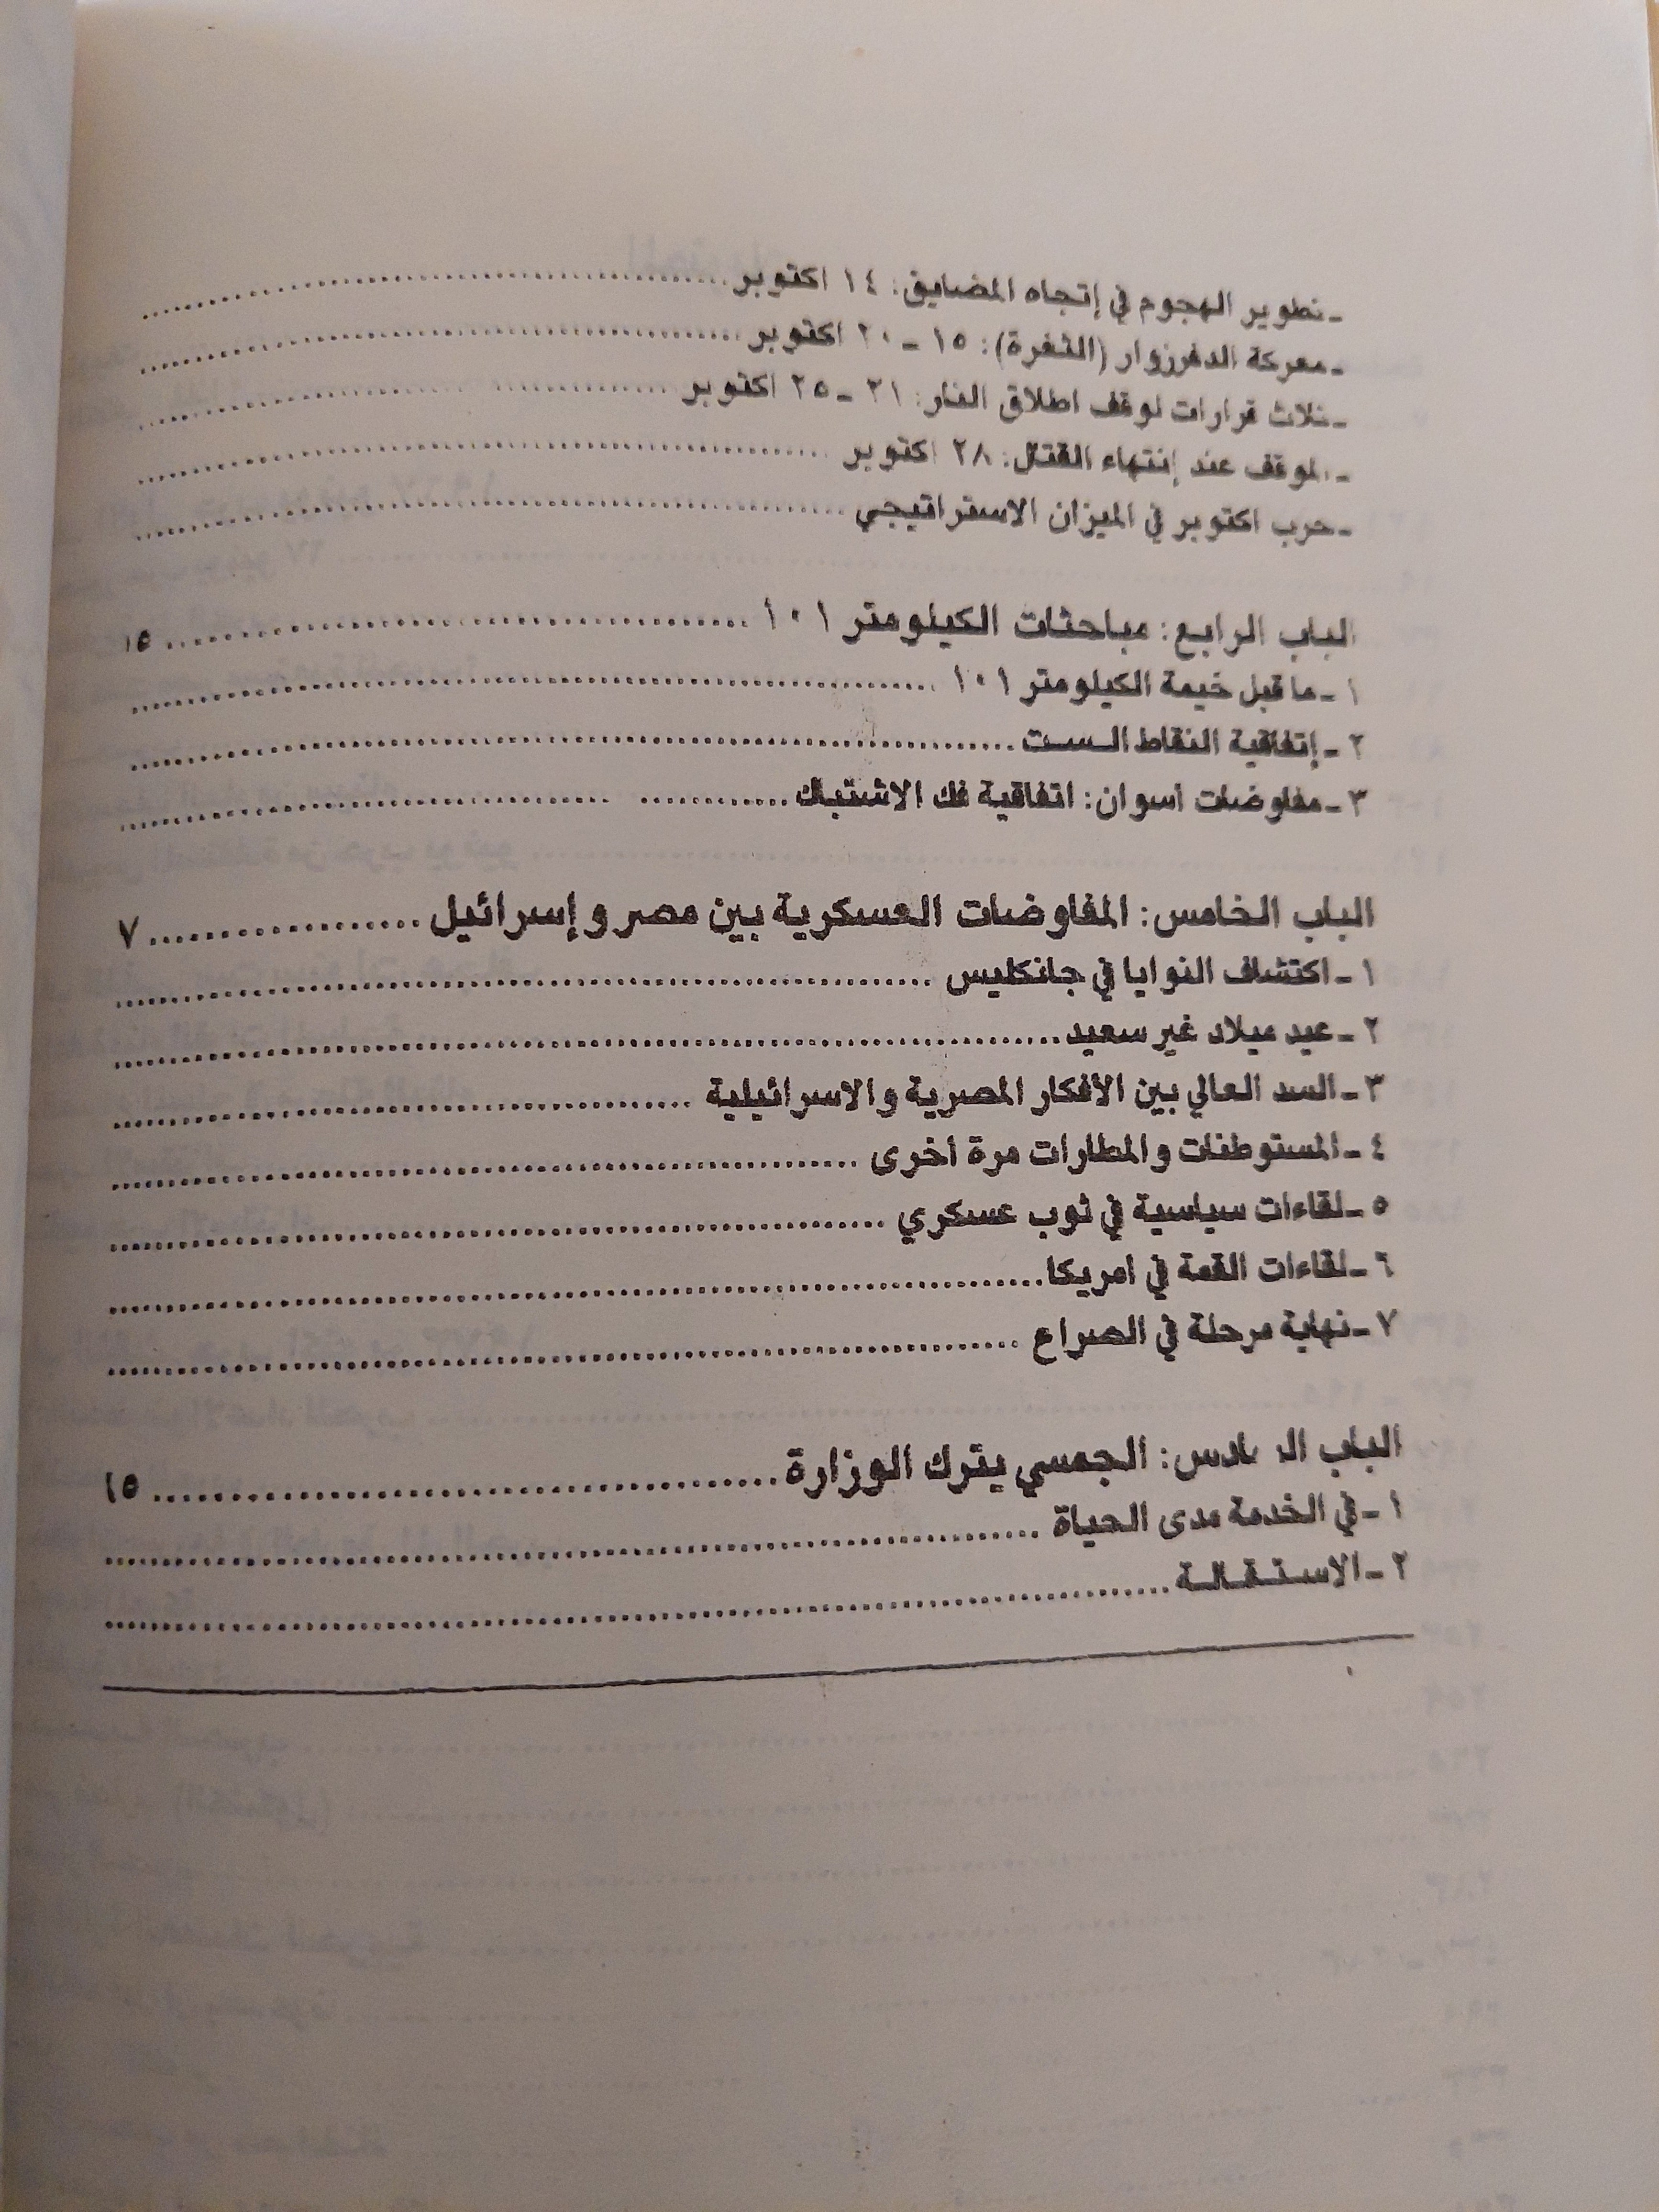 - تطوير الهجوم في إتجاه المضايق: ١٤ اكتوبر
- معركة الدفرزوار (الثغرة): ١٥ - ٢٠ اكتوبر
- ثلاث قرارات لوقف اطلاق النار: ٢١ - ٢٥ اكتوبر
- الموقف عند إنتهاء القتال: ٢٨ اكتوبر
- حرب اكتوبر في الميزان الاستراتيجي
الباب الرابع: مباحثات الكيلومتر ١٠١ ........ ١٥
١ - ما قبل خيمة الكيلومتر ١٠١
٢ - إتفاقية النقاط الست
٣ - مفاوضات أسوان: اتفاقية فك الاشتباك
الباب الخامس: المفاوضات العسكرية بين مصر وإسرائيل ........ ٧
١ - اكتشاف النوايا في جانكليس
٢ - عيد ميلاد غير سعيد
٣ - السد العالي بين الأفكار المصرية والاسرائيلية
٤ - المستوطنات والمطارات مرة أخرى
٥ - لقاءات سياسية في ثوب عسكري
٦ - لقاءات القمة في امريكا
٧ - نهاية مرحلة في الصراع
الباب السادس: الجمسي يترك الوزارة ........ ١٥
١ - في الخدمة مدى الحياة
٢ - الاستقالة